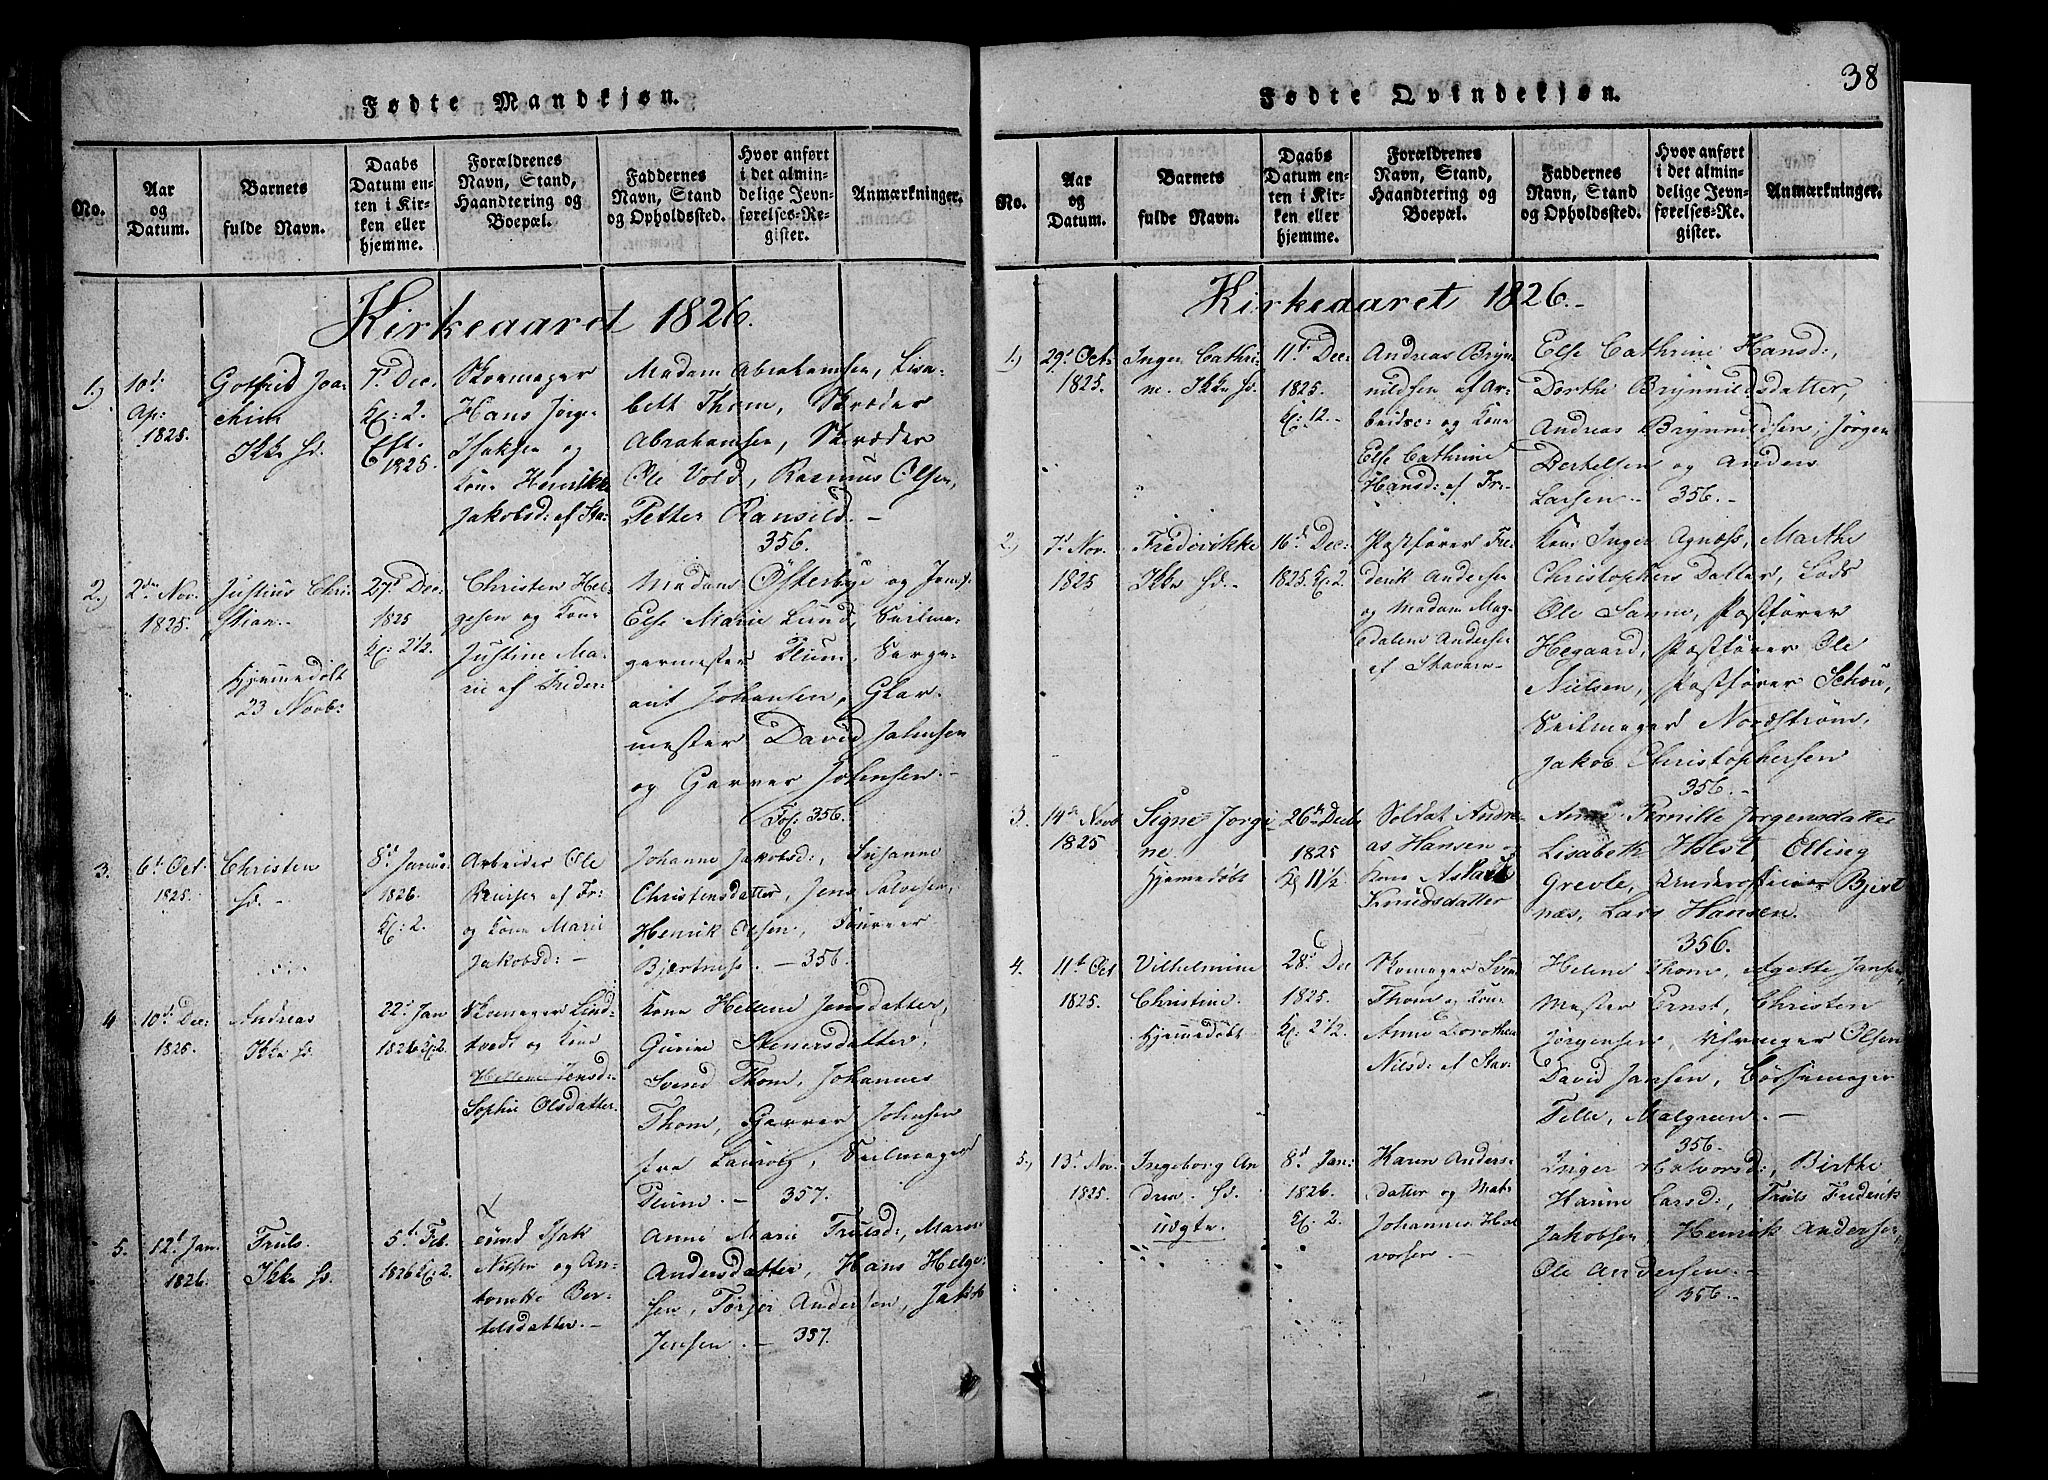 38
Fødte Mandkjøn.
No.
Aar
og
Datum.
Barnets
fulde Navn.
Daabs
Datum en-
ten i Kir-
ken eller
hjemme.
Forældrenes
Navn, Stand,
Haandtering og
Boepæl.
Faddernes
Navn, Stand
og Opholdssted.
Hvor anført
i det almin-
delige Jevn-
førelses-Re-
gister.
Anmærkninger.
Kirkeaaret 1826.
1.)
10d:
Ap:
1825.
Gotfried Joa-
chim
Ikke hd.
7d Dec:
Kl: 2.
Eft.
1825.
Skoemager
Hans Jørgen
Isaksen og
Kone Henrikke
Jakobsd: af Sta-
Madam Abrahamsen, Lisa-
beth Thom, Skræder
Abrahamsen, Skræder
Ole Vold, Rasmus Olsen,
Petter Ransild. -
356.
2.)
2den Nov.
1825.
Justius Chri-
stian.
Hjemmedøbt
23 Novb:
27d Dec:
1825
Kl: 2 1/2.
Christen Hel-
gesen og Kone
Justine Ma-
rie af Freder:
Madam Østerbye og Jomf:
Else Marie Lund, Seilma-
germester Plum, Serge-
ant Johansen, Glar-
mester David Johnsen
og Garver Johnsen. -
Fol: 356.
3.
6d Oct:
1825.
Christen
hd. -
8d Janua:
1826.
Kl: 2.
Arbeider Ole
af Fr:
og Kone Marie
Jakobsd: -
Johanne Jakobsd:, Susanne
Christensdatter, Jens Salvesen,
Henrik Olsen, Toureer
Bjærtnæss. - 356.
4
10d Dec:
1825.
Andreas
Ikke hd.
22d Jan
1826 Kl. 2.
Skomager Lind-
tvedt og Kone
Hellene Jensd:
Sophie Olsdatter.
Kone Hellene Jensdatter,
Gurine Stenersdatter,
Svend Thom, Johannes
Thom, Garver Johnsen
fra Laurvig, Seilmager
Plum. - 357.
5.
12d Jan:
1826.
Truls.
Ikke hd.
5d Feb.
1826 Kl. 2.
Isak
Nilsen og An-
tonette Ber-
telsdatter. -
Anne Marie Trulsd:, Maren
Andersdatter, Hans Helge-
sen, Torjer Andersen, Jakob
Jensen. - 357.
Fødte Qvindekjøn.
No.
Aar
og
Datum.
Barnets
fulde Navn.
Daabs
Datum en-
ten i Kir-
ken eller
hjemme.
Forældrenes
Navn, Stand,
Haandtering og
Boepæl.
Faddernes
Navn, Stand
og Opholdssted.
Hvor anført
i det almin-
delige Jevn-
førelses-Re-
gister.
Anmærkninger.
Kirkeaaret 1826. -
1.)
29d Oct.
1825.
Inger Cathri-
ne. Ikke hd.
11d Dec:
1825.
Kl: 12.
Andreas Bryn-
nildsen af Ar-
beider og Kone
Else Cathrine
Hansd: af Fre-
Else Cathrine Hansd:,
Dorthe Brynnildsdatter,
Andreas Brynnildsen, Jørgen
Bertelsen og Anders
Larsen. - 356. -
2.)
7d Nov.
1825
Frederikke
Ikke hd. -
16d Dec:
1825. Kl. 2.
Postfører Fre-
derik Andersen
og Madam Mag-
dalene Andersen
af Stavern -
Kone Inger Agnæss, Marthe
Christophers Datter, Lods
Ole Sanne, Postfører
Hegaard, Postfører Ole
Nielsen, Postfører Schou,
Seilmager Nordstrøm,
Jakob Christophersen
356. -
3.
14de Novb
1825
Signe Jorgi-
ne
Hjemedøbt
26de Decb.
1825
Kl 11 1/2
Soldat Andre-
as Hansen og
Kone
Knudsdatter
Anne Pernille Jørgensdatter
Lisabeth Holst, Elling
Grevle, Underofficeer Bjert
næs, Lars Hansen.
356.
4.
11d Oct
1825.
Vilhelmine
Christine.
Hjemmedøbt
28d Dec
1825.
Kl: 2 1/2.
Skomager Svend
Thom og Kone
Anne Dorothea
Nilsd: af Stav-
Helene Thom, Agette Jansen,
Mester Ernst, Christen
Jørgensen Uhrmager Olsen
David Jansen, Bøssemager
Tille, Malgreen. -
356.
5.,
13d Nov.
1825.
Ingeborg An-
drea. hd.
uægte.
8d Jan:
1826.
Kl. 2.
Karen Anders-
datter og Mat.
Johannes Hal-
vorsen. -
Inger Halvorsd:, Birthe
Karine Larsd:, Truls Frederik
Jakobsen, Henrik Andersen,
Ole Andersen. -
356. -